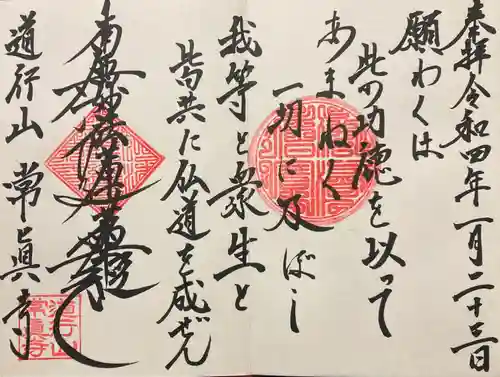 奉拝 令和四年一月二十三日
願わくは
此の功徳を以って
あまねく
一切に及ぼし
我等と衆生と
皆共に仏道を成ぜん
南無妙法蓮華経
道行山 常眞寺
道行山
常眞寺